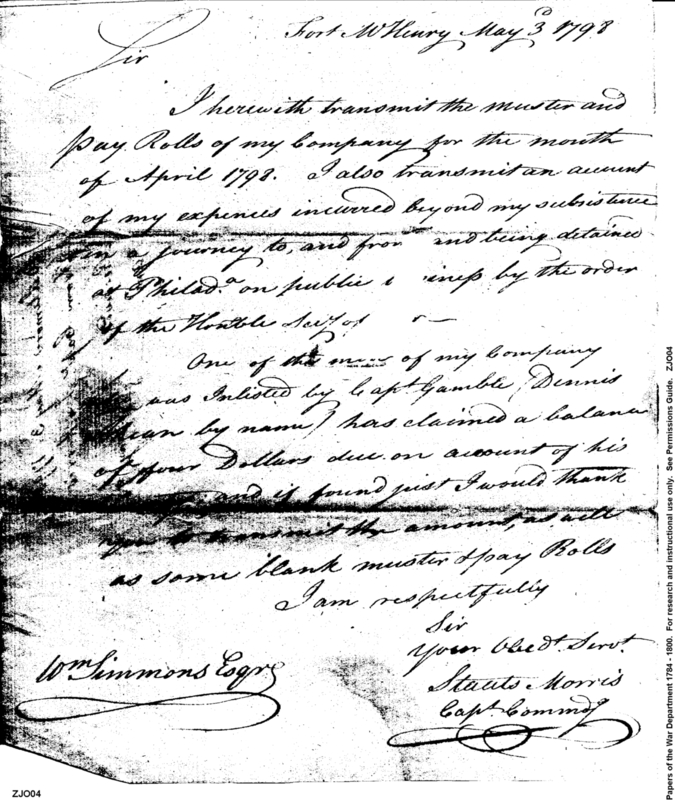 Fort McHenry May 3d 1798
Sir
I herewith transmit the muster and
Pay Rolls of my Company for the month
of April 1798. I also transmit an account
of my expences incurred beyond my subsistence
in a journey to, and from and being detained
at Philada. on public by the order
of the Honble Secy. of
One of the of my Company
was Inlisted by Capt. Gamble (Dennis
by name) has claimed a balance
of four Dollars due on account of his
and if found just I would thank
you to transmit the amount, as well
as some blank muster & pay Rolls
I am respectfully
Sir
Your Obedt. Servt.
Staats Morris
Capt. Commdg
Wm Simmons Esqre
ZJO04
Papers of the War Department 1784 - 1800. For research and instructional use only. See Permissions Guide. ZJO04